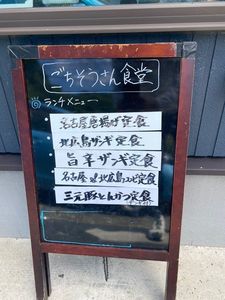 ごちそうさん食堂
ランチメニュー
名古屋唐揚げ定食
北広島ザンギ定食
旨辛ザンギ定食
名古屋 北広島 定食
三元豚とんかつ定食